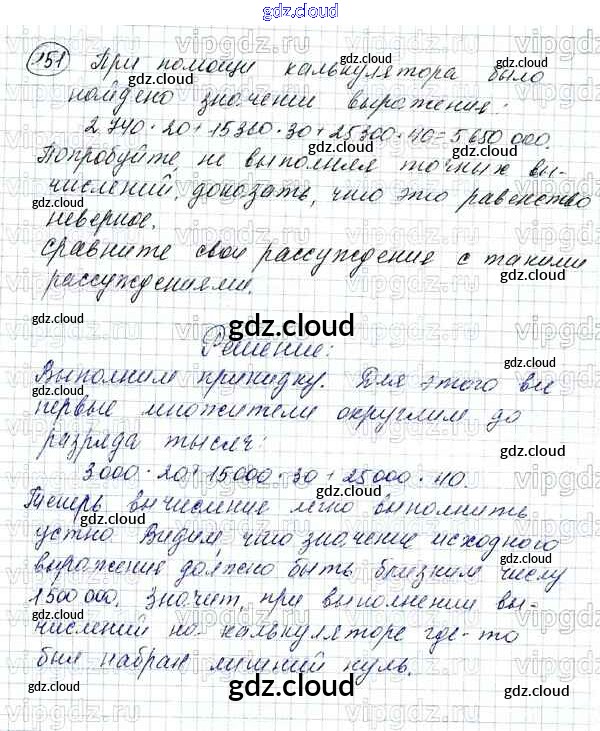 gdz.cloud
151 При помощи калькулятора было
найдено значении выражения:
2 740 · 20 + 15 360 · 30 + 25300 · 40 = 5 650 000.
Попробуйте, не выполняя точных вы-
числений, доказать, что это равенство
неверное.
Сравните свои рассуждения с такими
рассуждениями.
Решение:
Выполним прикидку. Для этого все
первые множители округлим до
разряда тысяч:
3000 · 20 + 15000 · 30 + 25000 · 40.
Теперь вычисление легко выполнить
устно Видим, что значение исходного
выражения должно быть близким числу
1500 000. Значит, при выполнении вы-
числений на калькуляторе где-то
был набран лишний нуль.
gdz.cloud